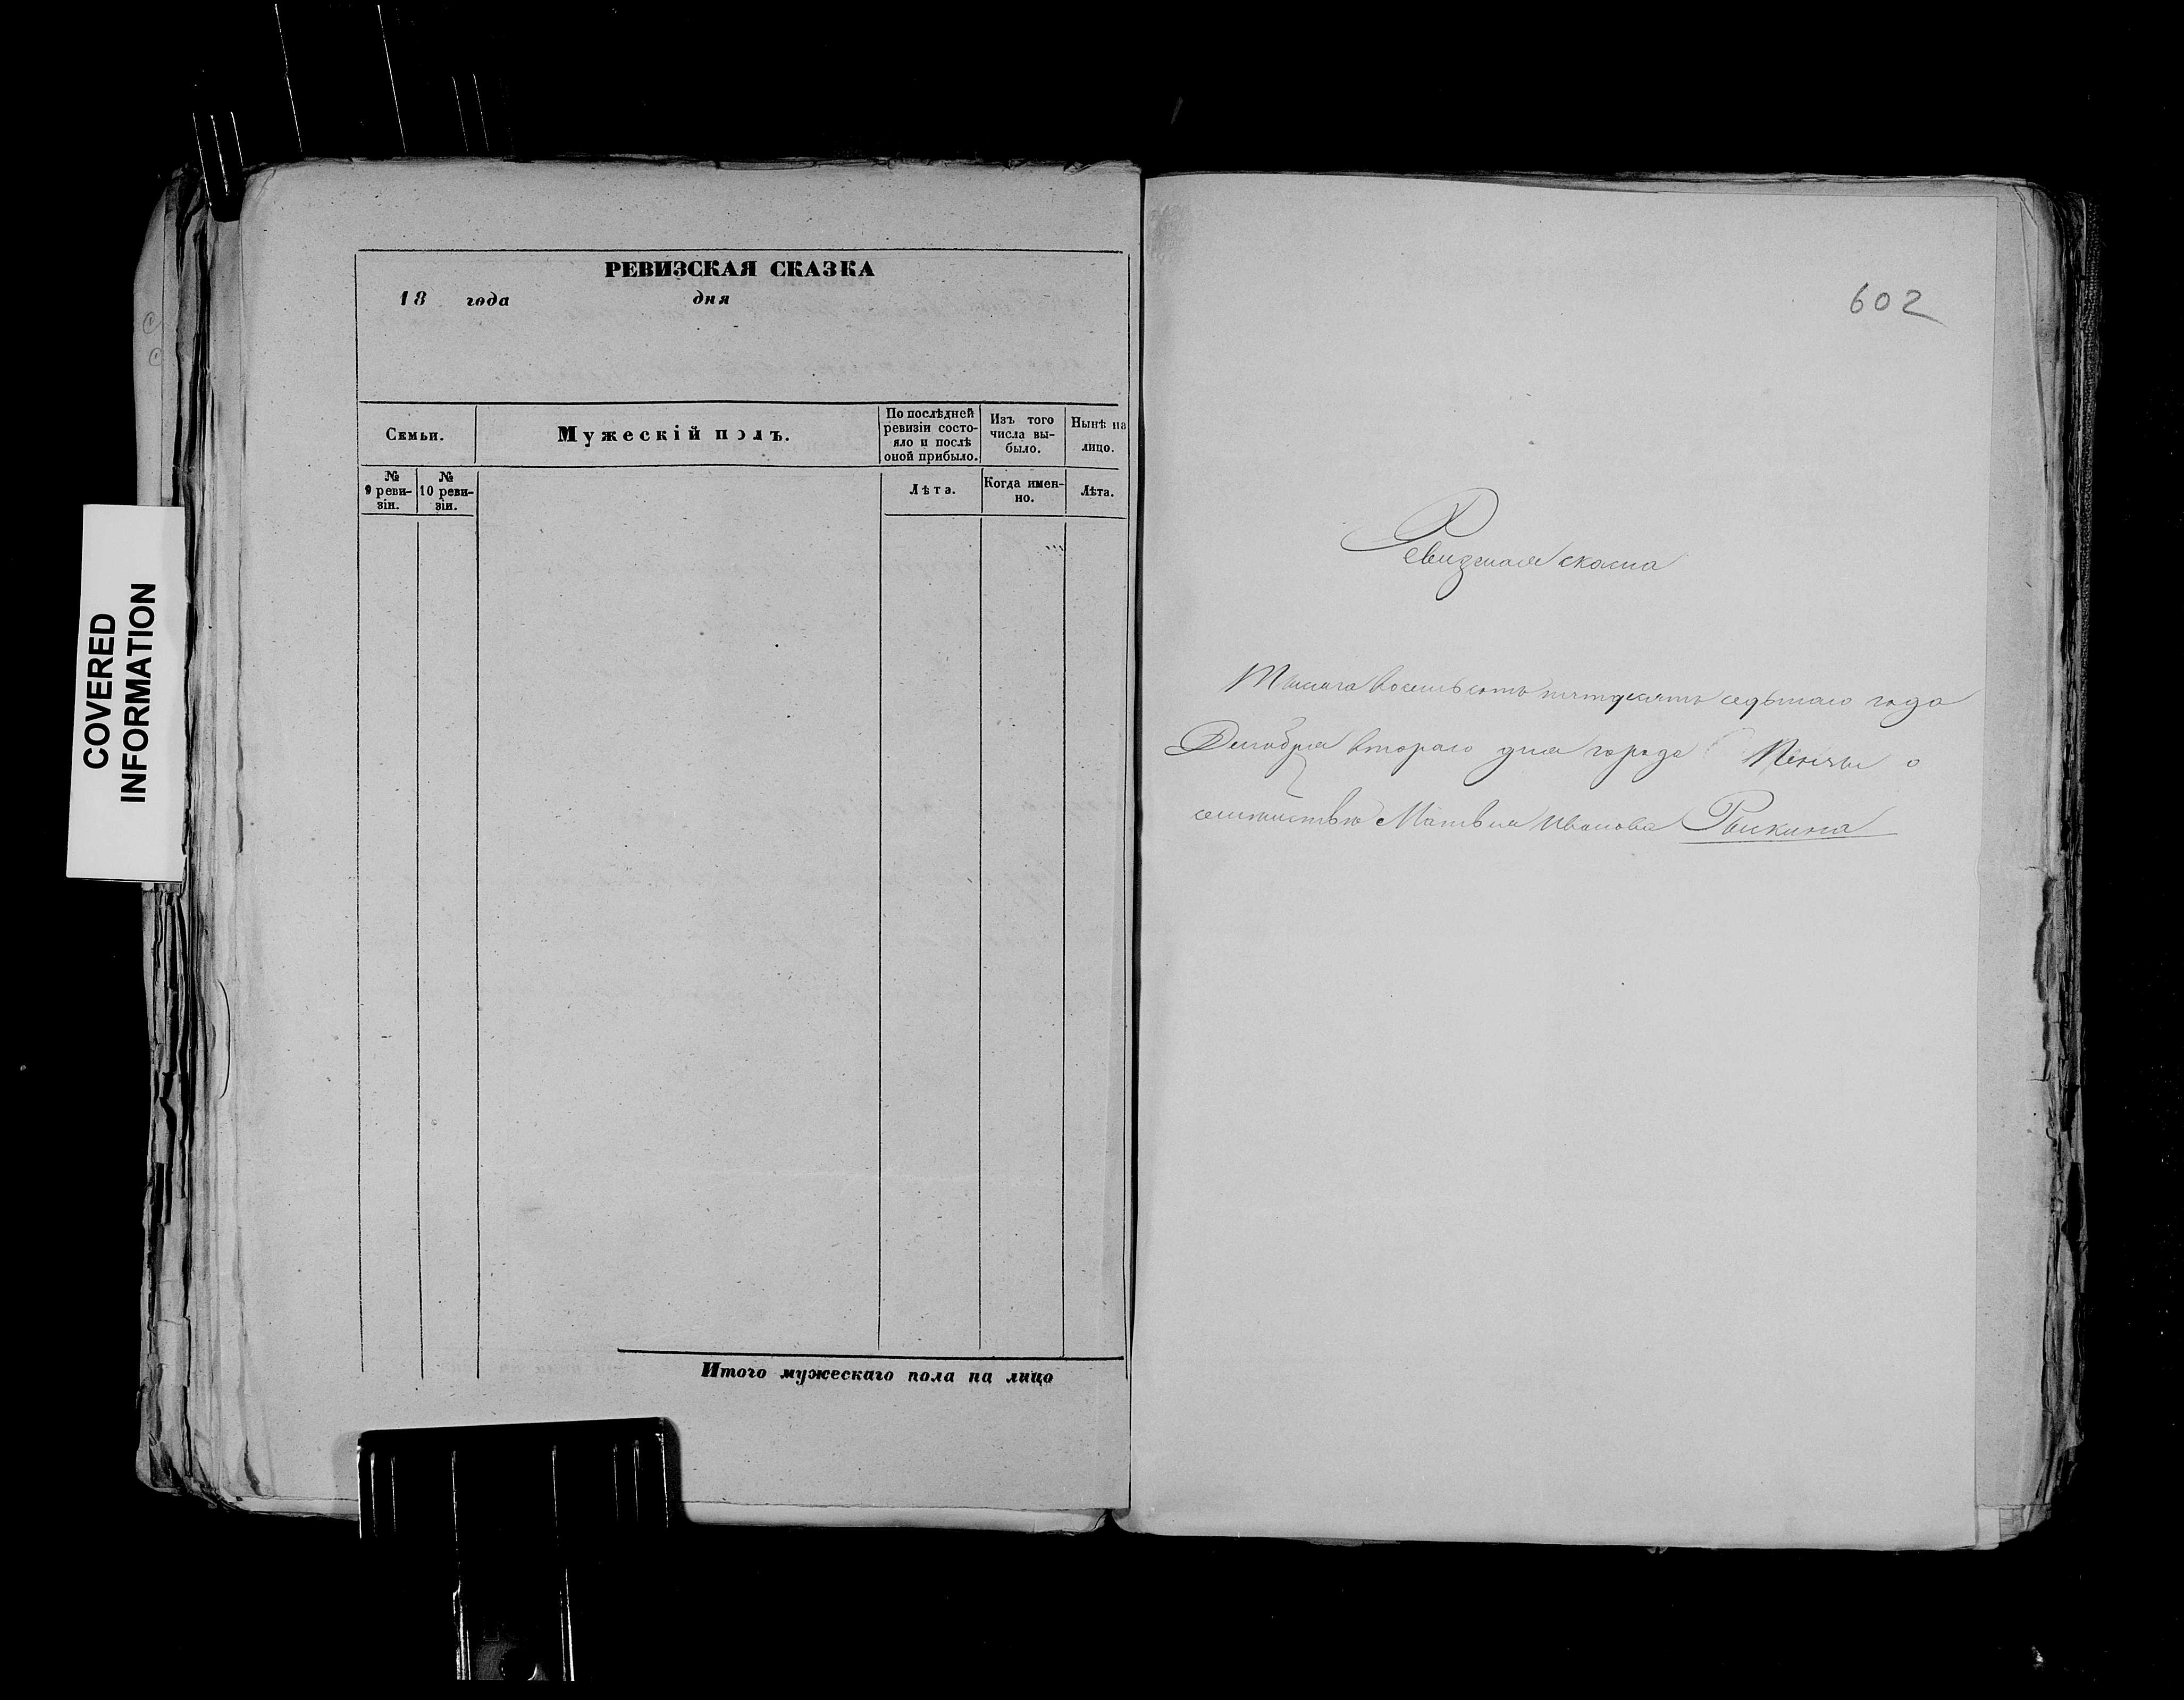 COVERED
INFORMATION
РЕВИЗСКАЯ СКАЗКА
18 года дня
Семьи.
Мужескій полъ.
По послѣдней
ревизіи состо-
яло и послѣ
оной прибыло.
Изъ того
числа вы-
было.
Нынѣ на
лицо.
№
9 реви-
зіи.
№
10 реви-
зіи.
Лѣта.
Когда имен-
но.
Лѣта.
Итого мужескаго пола на лицо
602
Ревизская скаска
Тысяча восемьсотъ пятдесятъ седьмаго года
Декабря втораго дня города Пензы о
семействѣ Матвея Иванова